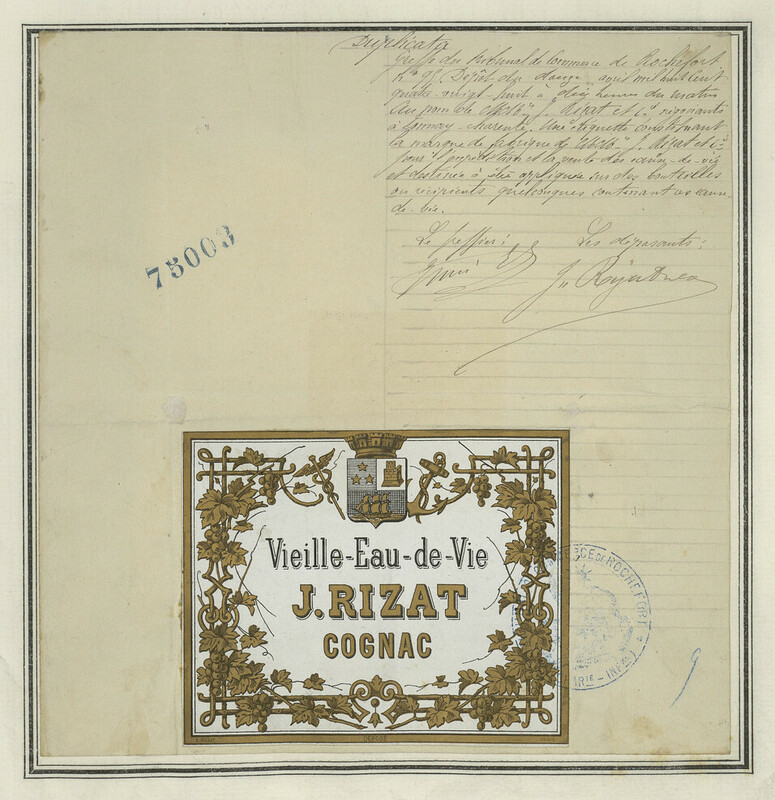 Duplicata
Greffe du Tribunal de Commerce de Rochefort
Dépôt du douze avril mil huit cent
quatre-vingt-huit à dix heures du matin
Au nom de J. Rizat et Cie négociants
à Tonnay-Charente. Une étiquette constituant
la marque de fabrique de J. Rizat et Cie
pour l'expédition et la vente des eaux-de-vie
et destinée à être appliquée sur des bouteilles
ou récipients quelconques contenant ces eaux-
de-vie.
Le greffier: Les déposants:
75003
Vieille-Eau-de-Vie
J. RIZAT
COGNAC
CE DE ROCHEFORT
RIE - INFRE
9